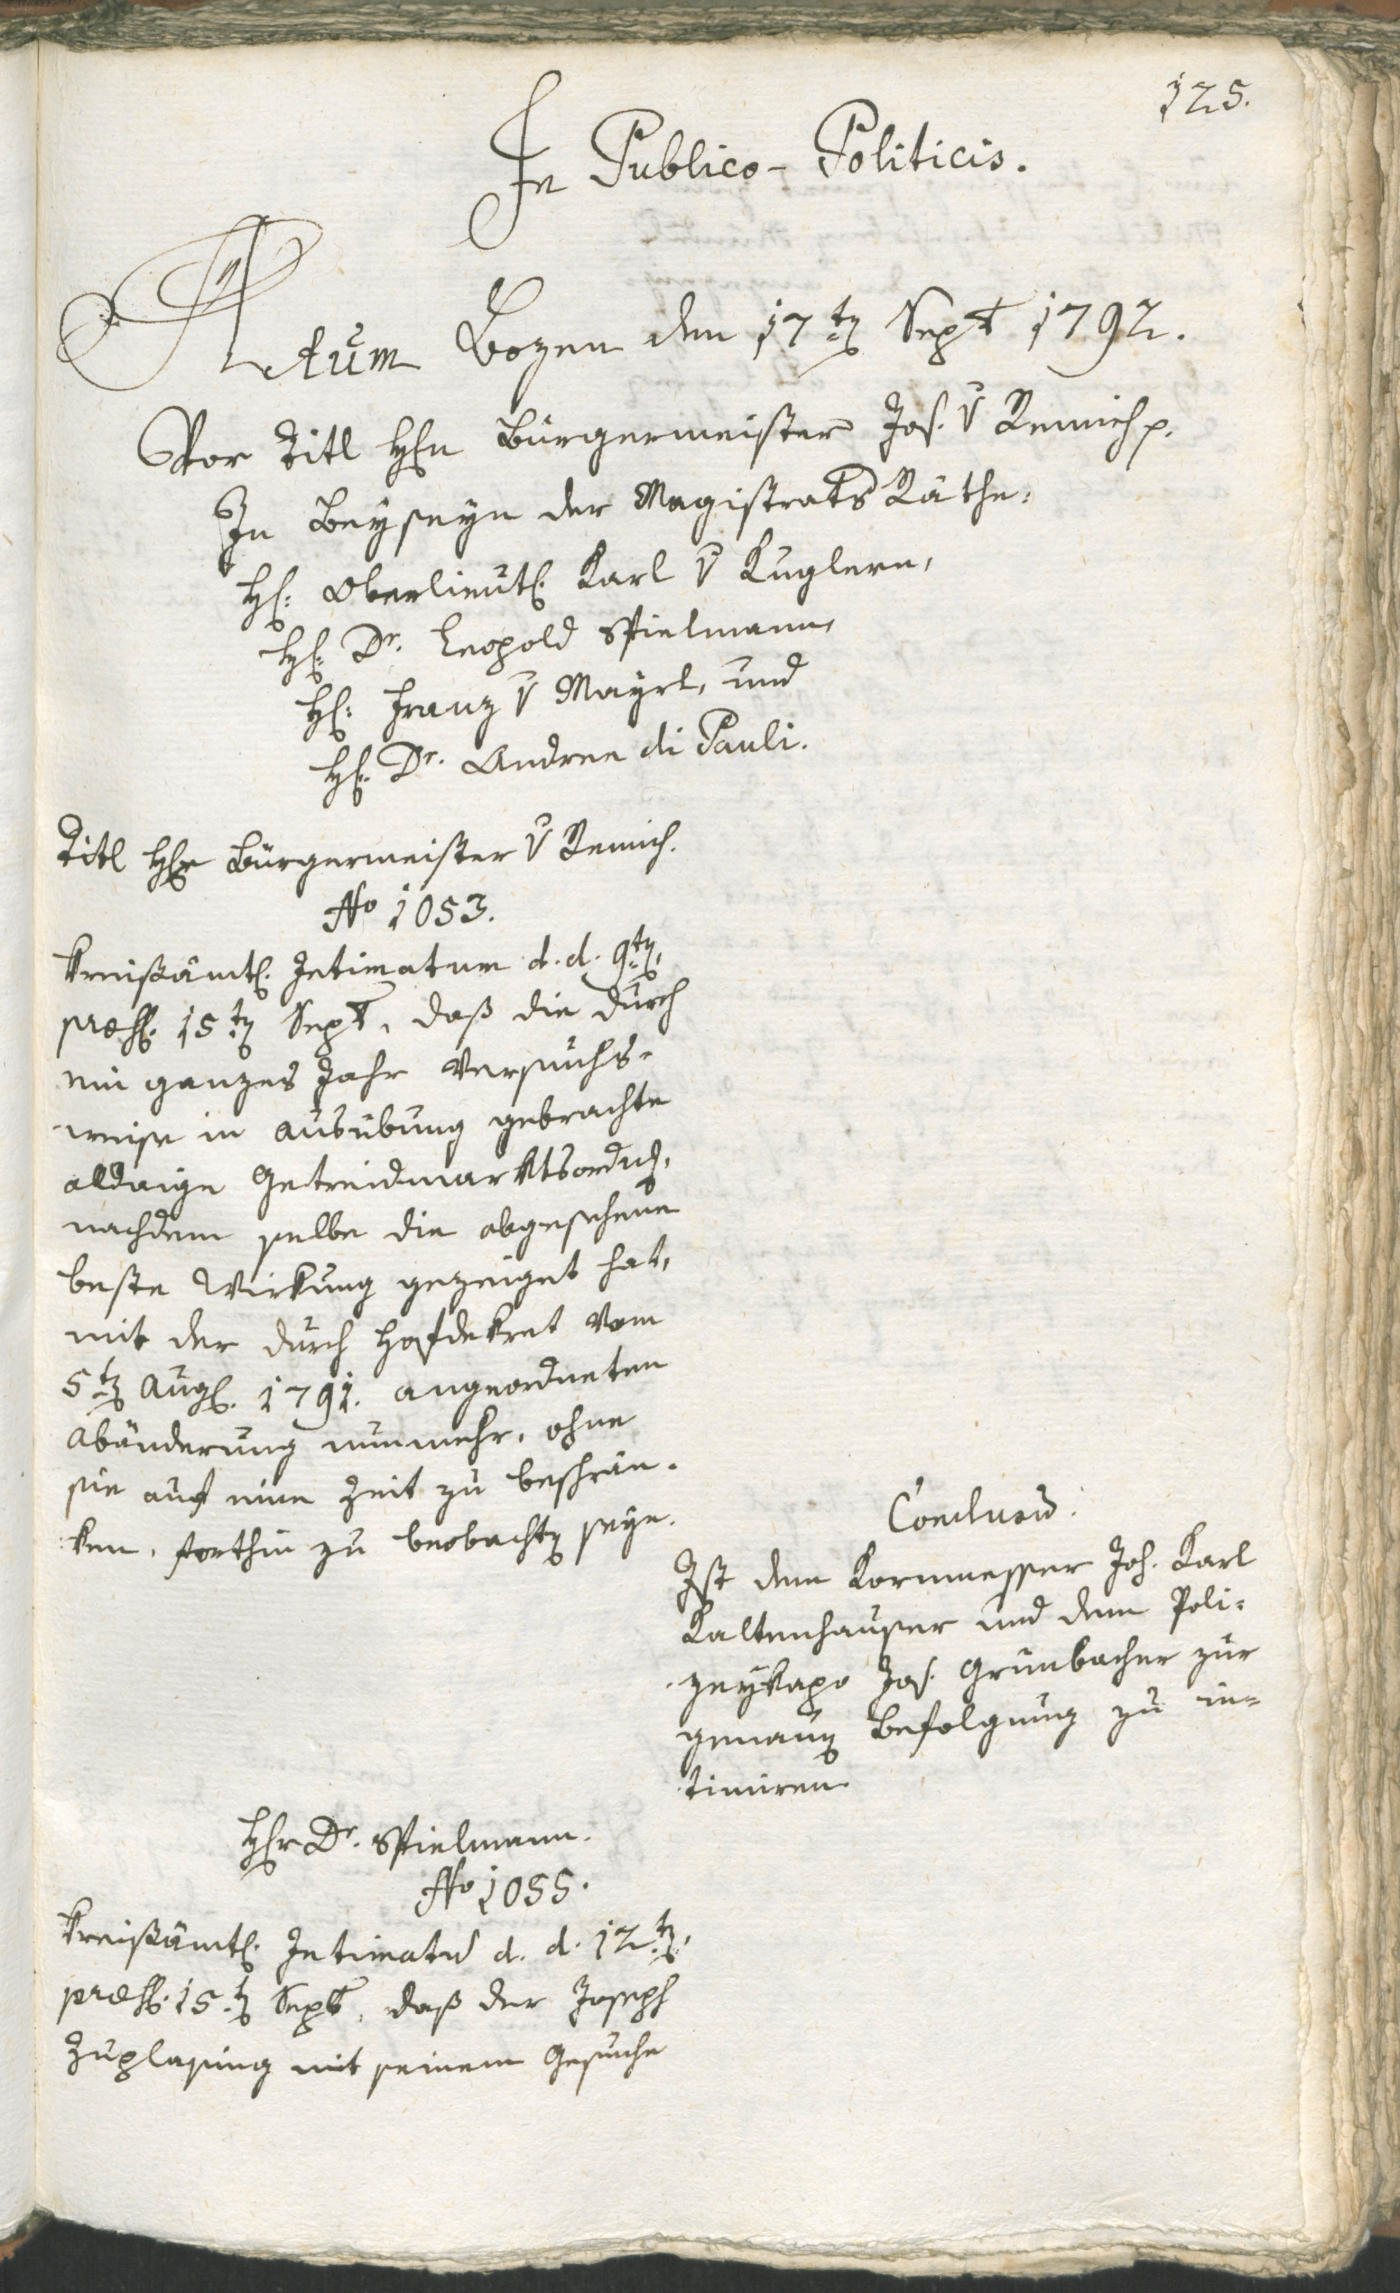 125.
In Publico-Politicis.
Actum Bozen den 17ten Sept 1792.
Vor Titl Hrn Bürgermeister Jos. v Remich p.
In Beyseyn der Magistrats Räthe:
H: Oberlieut. Karl v Kuglern,
H: Dr. Leopold Spielmann,
H: Franz v Mayrl, und
H: Dr. Andree di Pauli.
Titl Hr Bürgermeister v Remich.
No 1053.
Kreißämtl. Intimatum d. d. 9ten,
præs. 15ten Sept, daß die durch
ein ganzes Jahr Versuchs-
weise in ausübung gebrachte
alldaige Getreidmarktsordng,
nachdem selbe die abgesehene
beste Wirkung gezeiget hat,
mit der durch Hofdekret vom
5ten Aug. 1791. angeordneten
abänderung nunmehr, ohne
sie auf eine Zeit zu beschrän-
ken, forthin zu beobachten seye.
Conclusum:
Ist dem Kornmesser Joh. Karl
Kaltenhauser und dem Poli-
zeykapo Jos. Grünbacher zur
genauen Befolgung zu in-
timiren.
Hr Dr. Spielmann.
No 1055.
Kreißämtl. Intimatum d. d. 12ten,
præs. 15ten Sept, daß der Joseph
Zuplasing mit seinem Gesuche